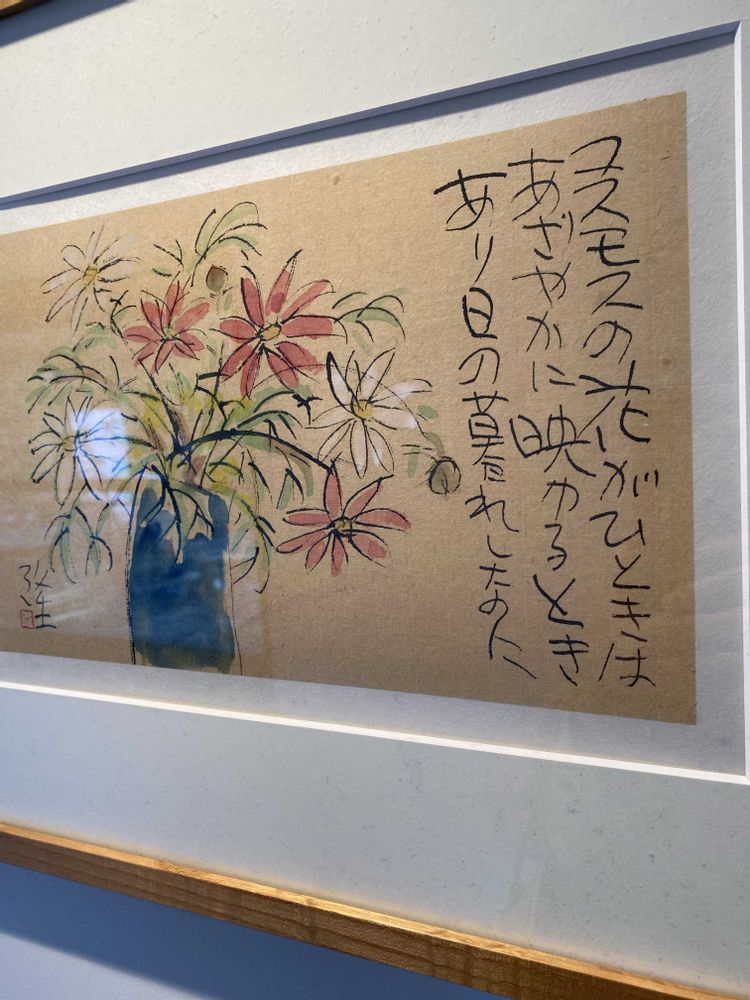 コスモスの花がひときは
あざやかに映かるとき
あり日の暮れしたのに
弥生